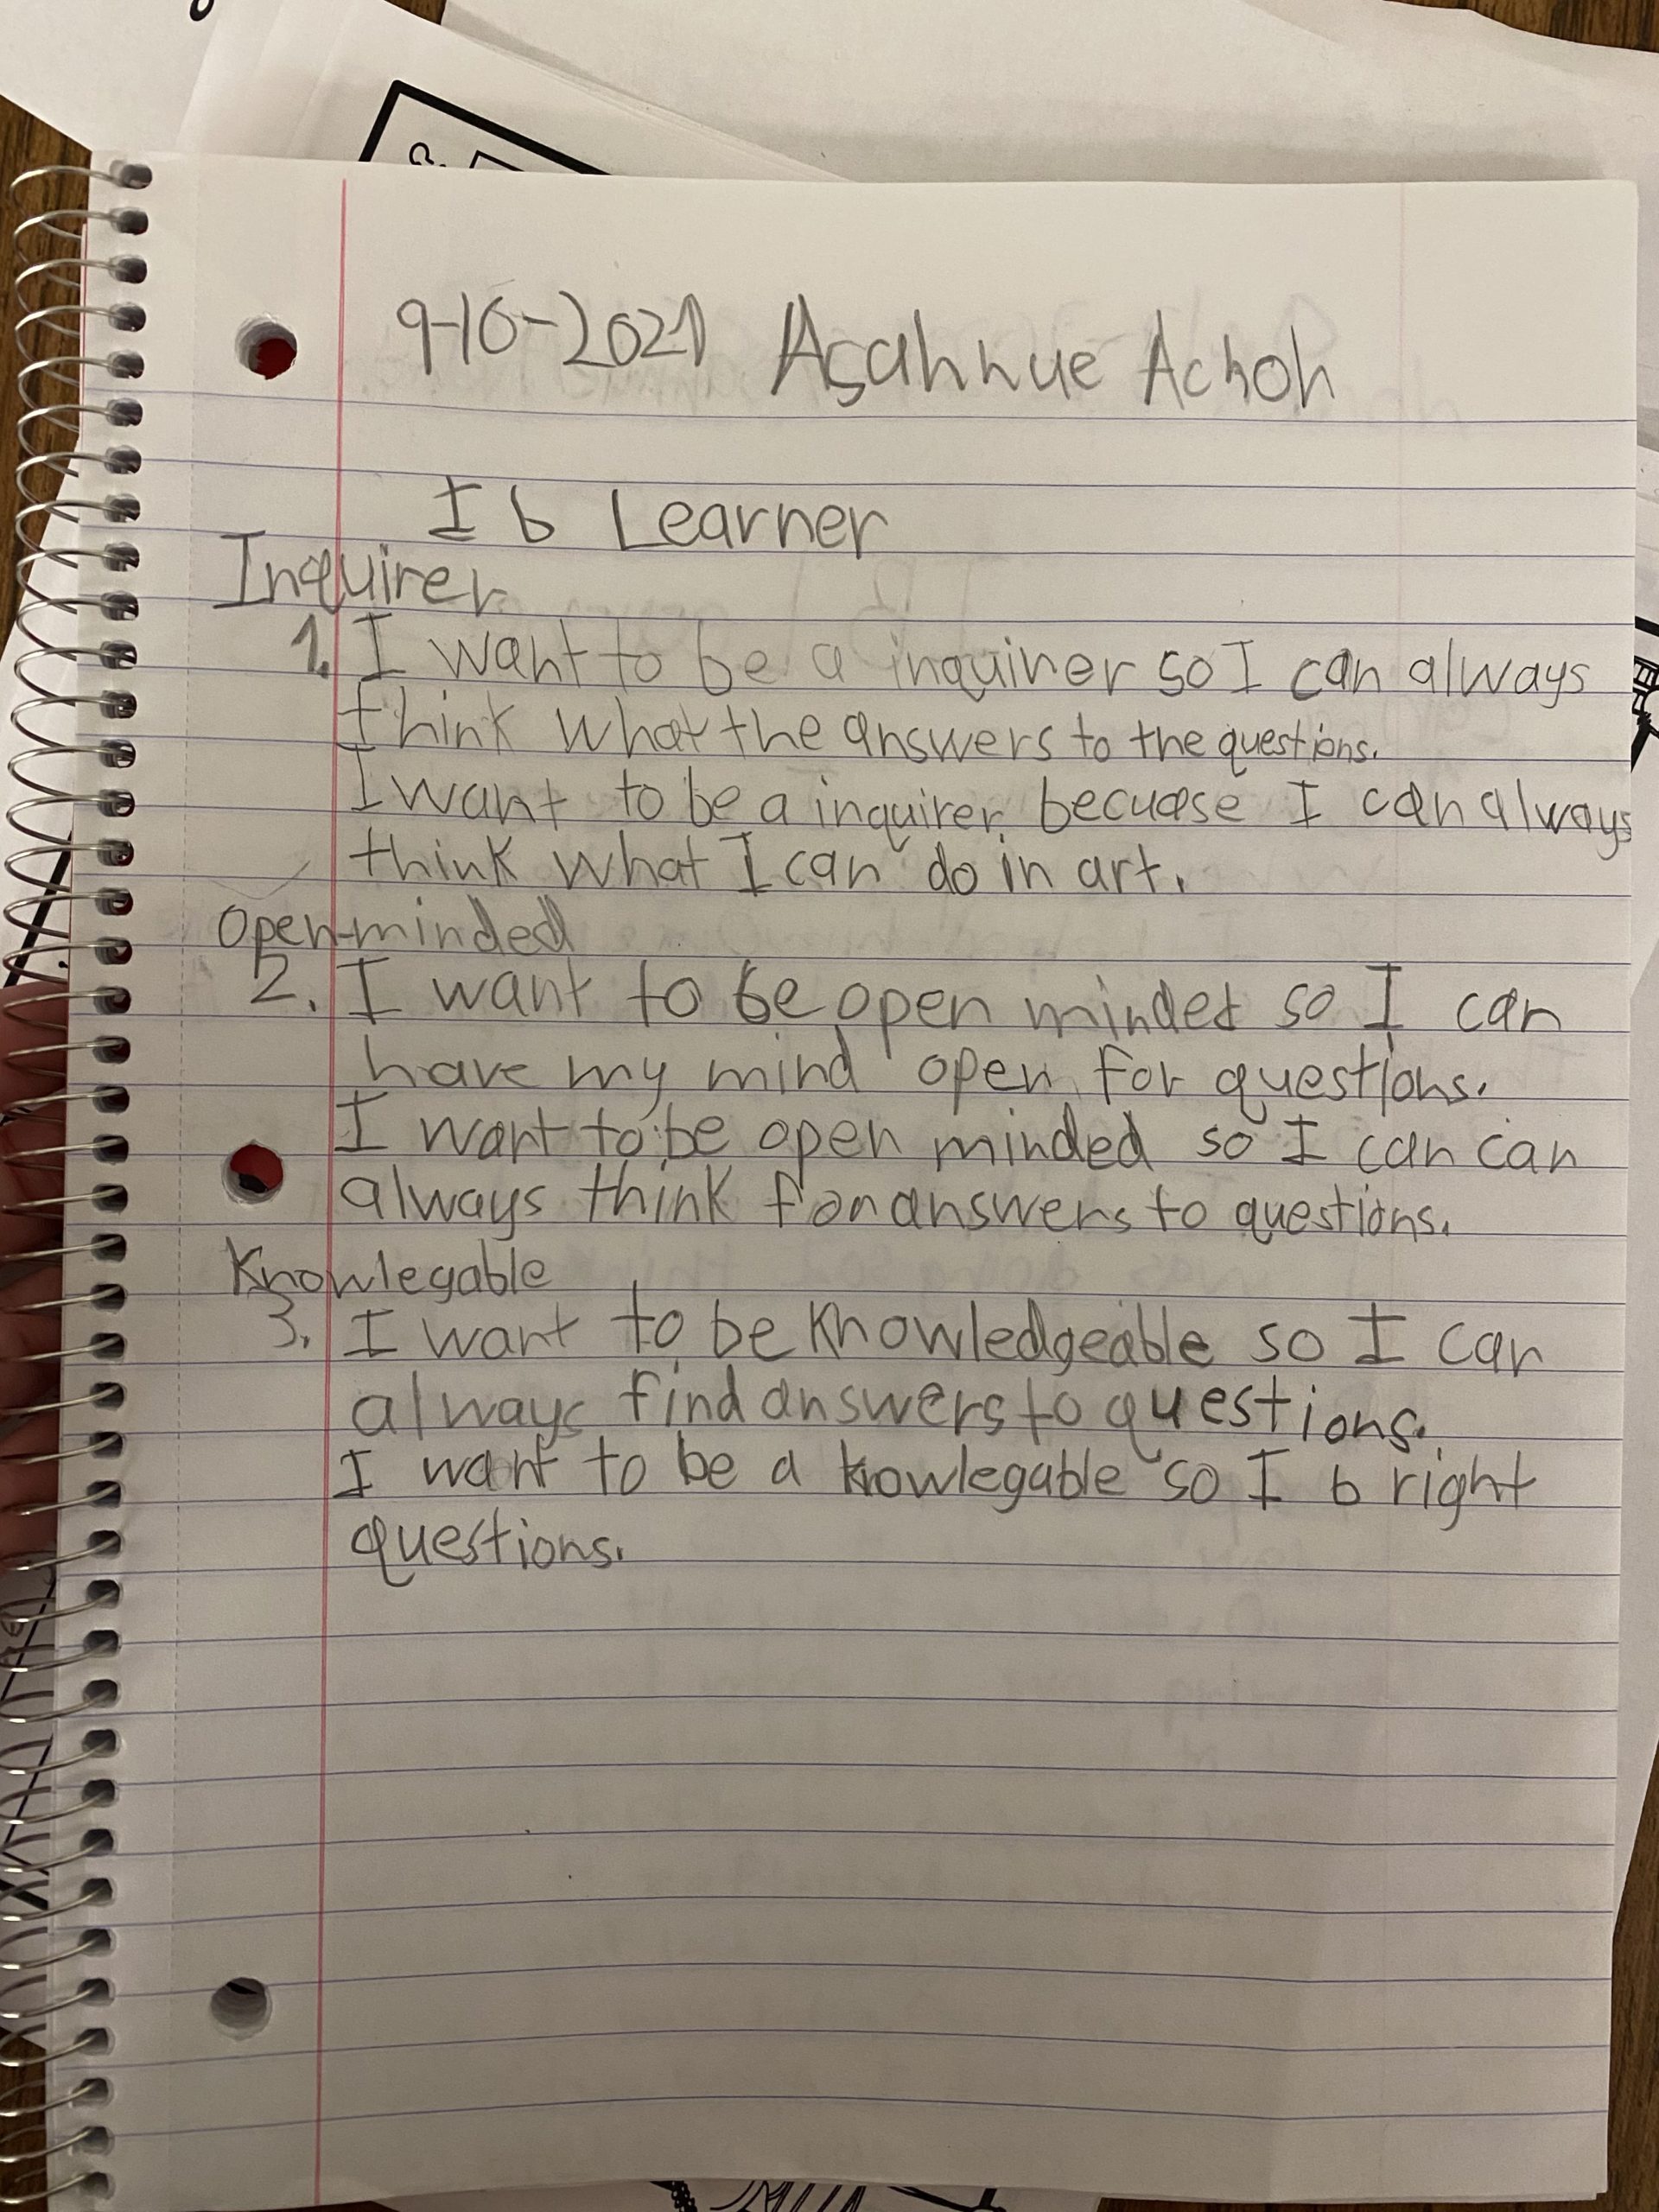 9-10-2021 Asahhue Achoh
Ib Learner
Inquirer
1. I want to be a inquirer so I can always
think what the answers to the questions.
I want to be a inquirer becuase I can always
think what I can do in art.
Open-minded
2. I want to be open minded so I can
have my mind open for questions.
I want to be open minded so I can can
always think for answers to questions.
Knowlegable
3. I want to be knowledgeable so I can
always find answers to questions.
I want to be a knowlegable so I b right
questions.